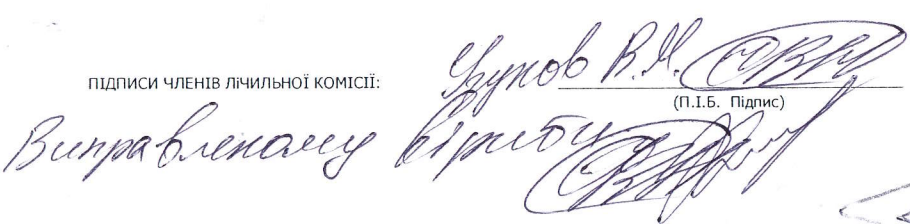 ПІДПИСИ ЧЛЕНІВ ЛІЧИЛЬНОЇ КОМІСІЇ: Жуков В.М.
(П.І.Б. Підпис)
Виправленому вірити